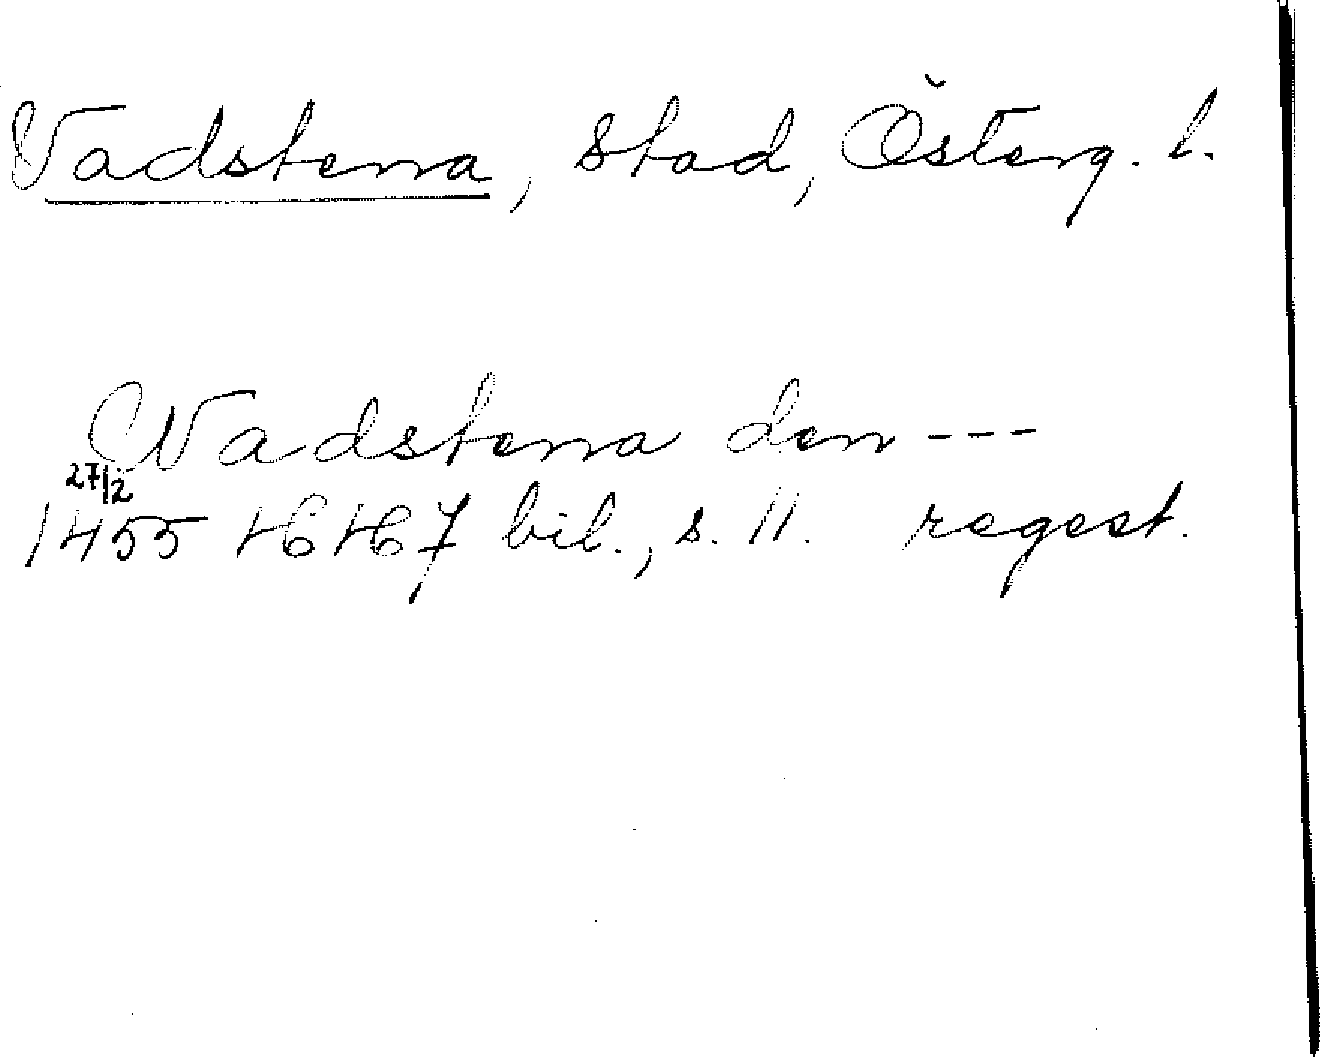 Vadstena, stad, Österg. l.
Wadstena den ---
27/2
1455 HH7 bil., s. 11. regest.